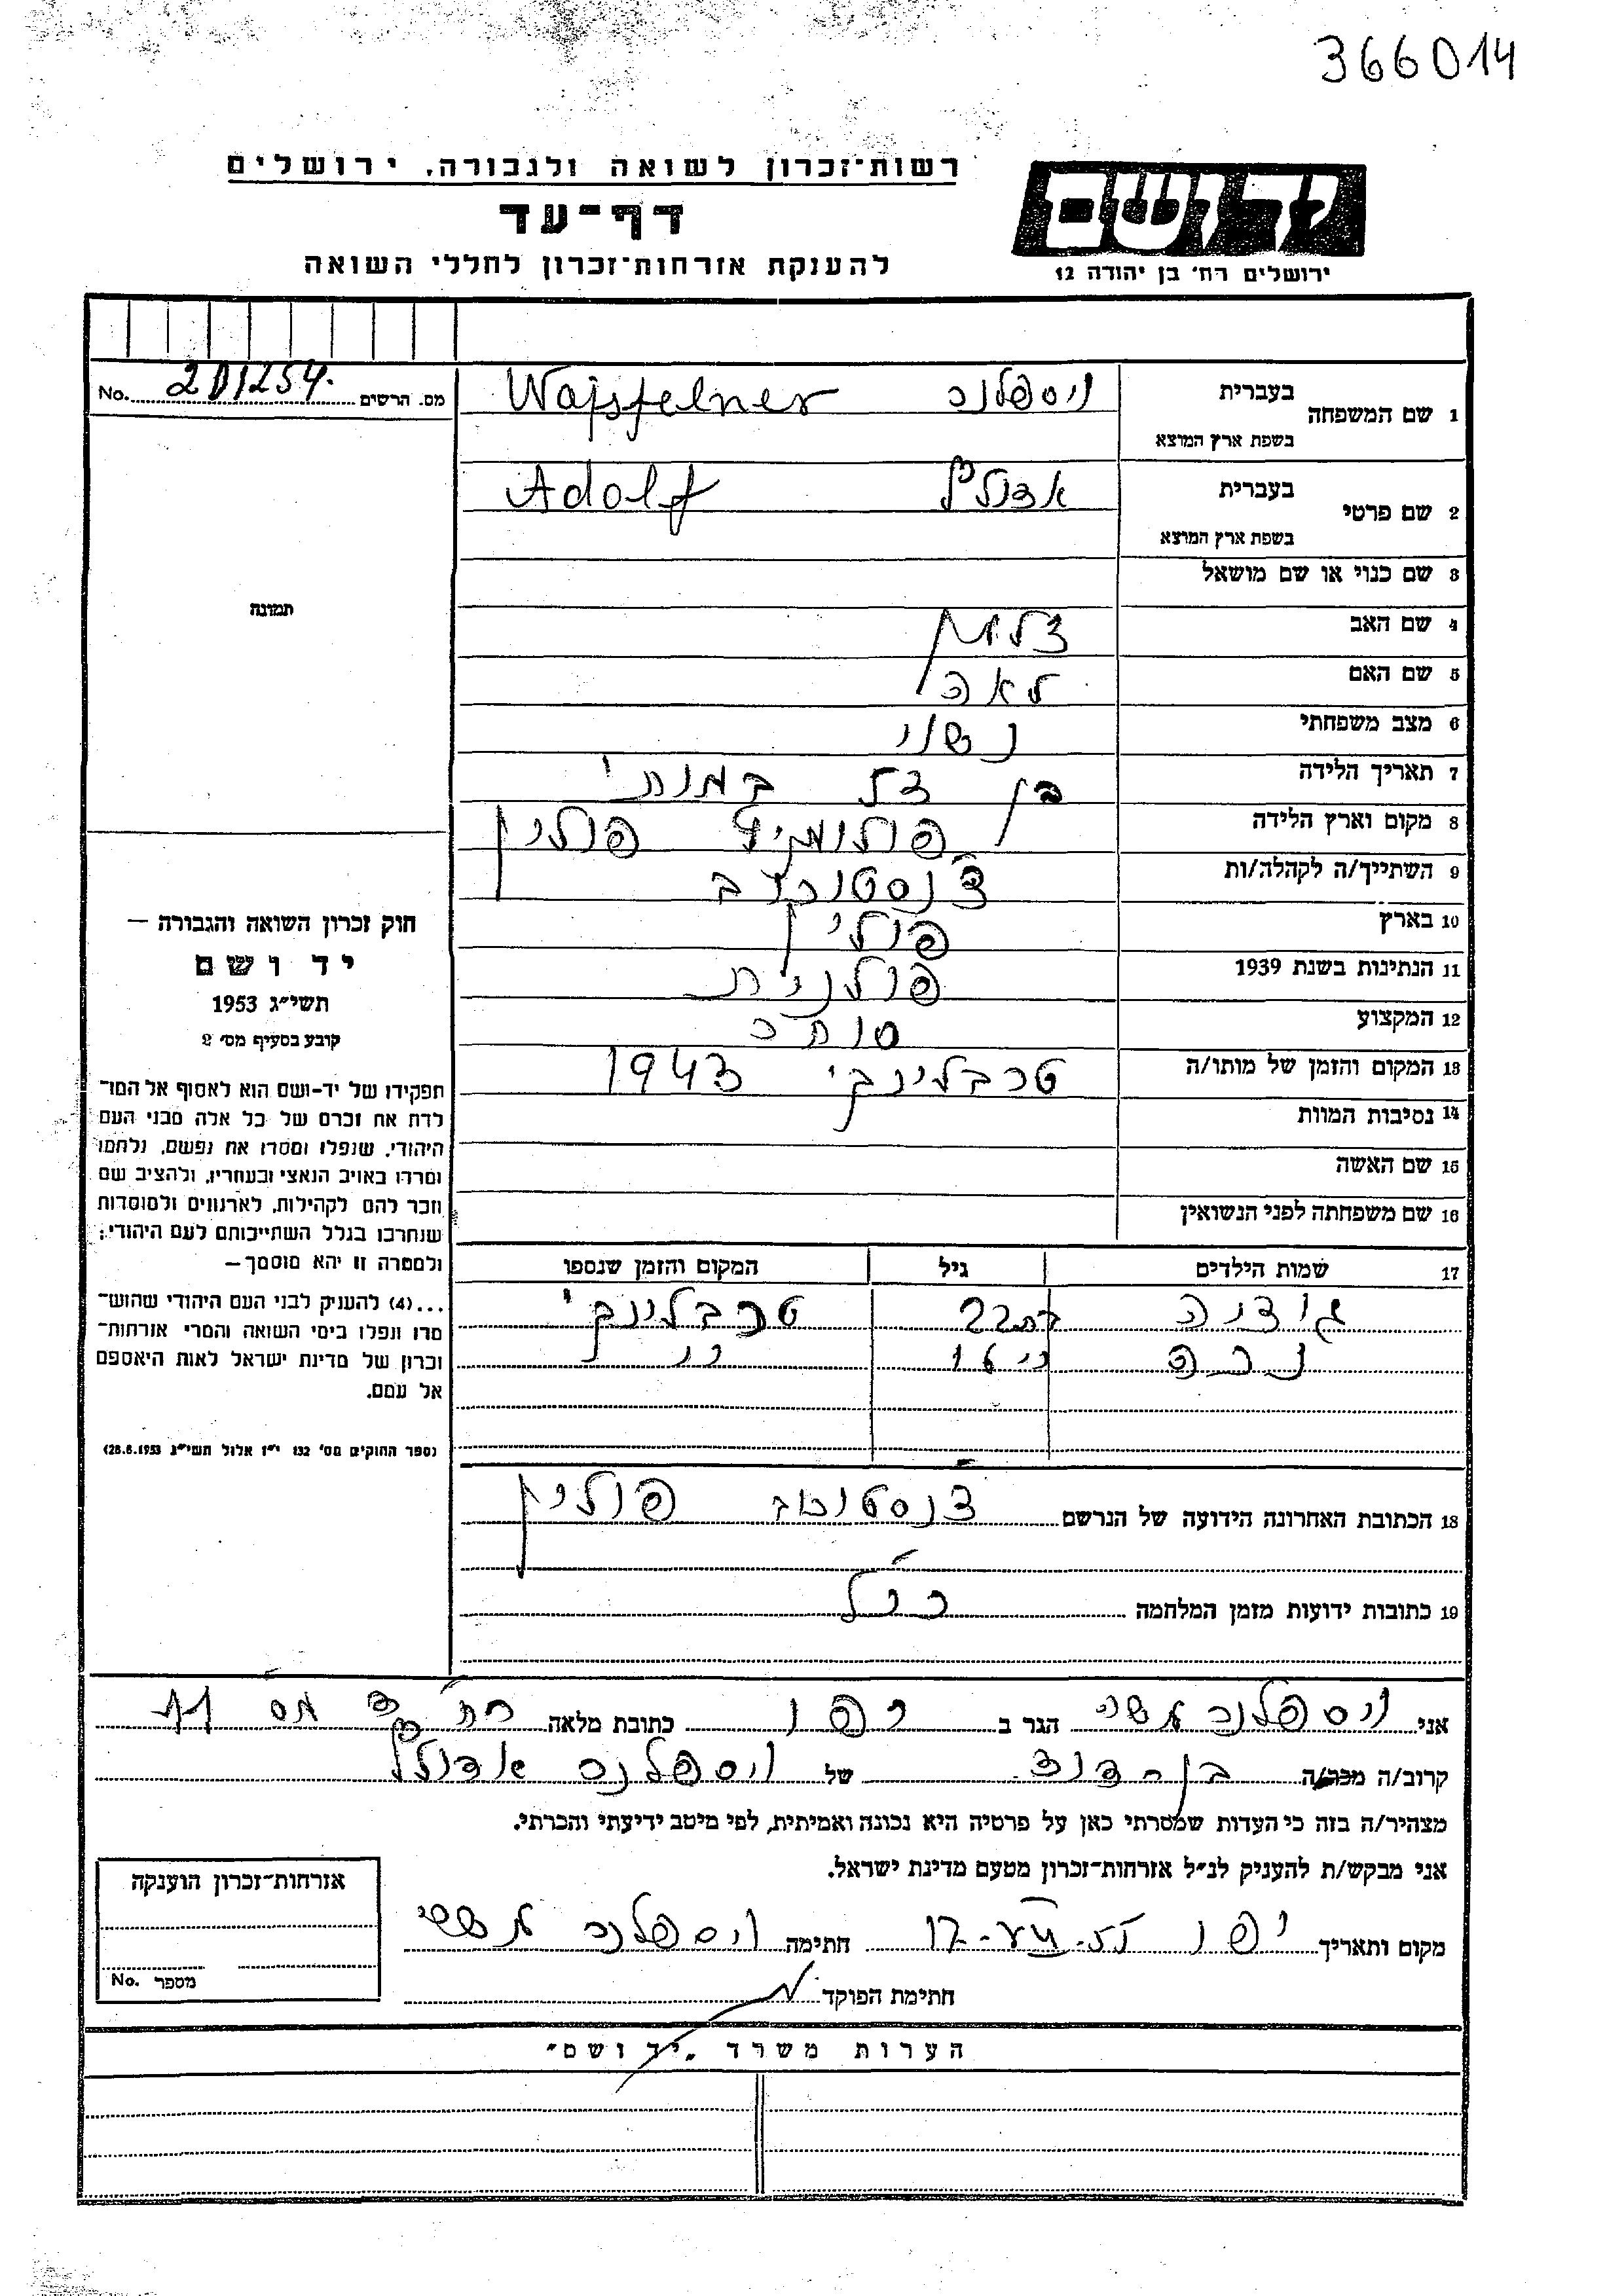 366014
רשות־זכרון לשואה ולגבורה, ירושלים
דף־עד
להענקת אזרחות־זכרון לחללי השואה
יד ושם
ירושלים רח' בן יהודה 12
מס. הרשים No. 201254
1 שם המשפחה בעברית ויספלנר
בשפת ארץ המוצא Wajsfelner
2 שם פרטי בעברית אדולף
בשפת ארץ המוצא Adolf
3 שם כנוי או שם מושאל
4 שם האב
5 שם האם לאה
6 מצב משפחתי נשוי
7 תאריך הלידה בן במות'
8 מקום וארץ הלידה פולין
9 השתייך/ה לקהלה/ות
10 בארץ פולין
11 הנתינות בשנת 1939 פולנית
12 המקצוע סוחר
13 המקום והזמן של מותו/ה טרבלינקי 1943
14 נסיבות המוות
15 שם האשה
16 שם משפחתה לפני הנשואין
17 שמות הילדים גיל המקום והזמן שנספו
22 טרבלינקי
18 הכתובת האחרונה הידועה של הנרשם פולין
19 כתובות ידועות מזמן המלחמה כנ"ל
תמונה
חוק זכרון השואה והגבורה —
יד ושם
תשי"ג 1953
קובע בסעיף מס' 2
תפקידו של יד-ושם הוא לאסוף אל המו־
לדת את זכרם של כל אלה מבני העם
היהודי, שנפלו ומסרו את נפשם, נלחמו
ומרדו באויב הנאצי ובעוזריו, ולהציב שם
וזכר להם לקהילות, לארגונים ולמוסדות
שנחרבו בגלל השתייכותם לעם היהודי;
ולמטרה זו יהא מוסמך —
...(4) להעניק לבני העם היהודי שהוש־
מדו ונפלו בימי השואה והמרי אזרחות־
זכרון של מדינת ישראל לאות היאספם
אל עמם.
(ספר החוקים מס' 132 י"ז אלול תשי"ג 28.8.1953)
אני ויספלנר משה הגר ב יפו כתובת מלאה רח' מס
קרוב/ה מכר/ה בן דוד של ויספלנר אדולף
מצהיר/ה בזה כי העדות שמסרתי כאן על פרטיה היא נכונה ואמיתית, לפי מיטב ידיעתי והכרתי.
אני מבקש/ת להעניק לנ"ל אזרחות־זכרון מטעם מדינת ישראל.
מקום ותאריך יפו חתימה ויספלנר משה
חתימת הפוקד
אזרחות־זכרון הוענקה
מספר No.
הערות משרד „יד ושם"